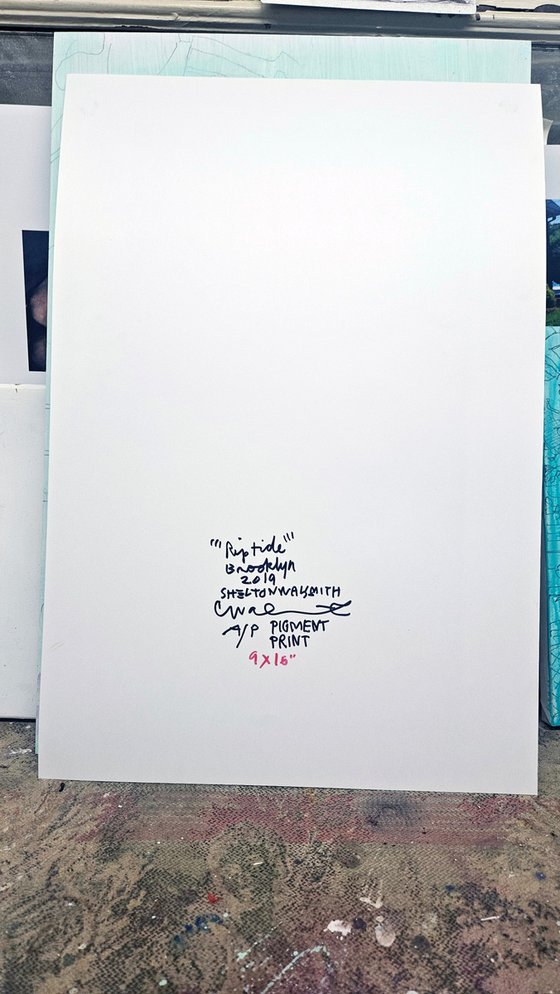 "'Riptide'"
Brooklyn
2019
SHELTONWALSMITH
A/P PIGMENT
PRINT